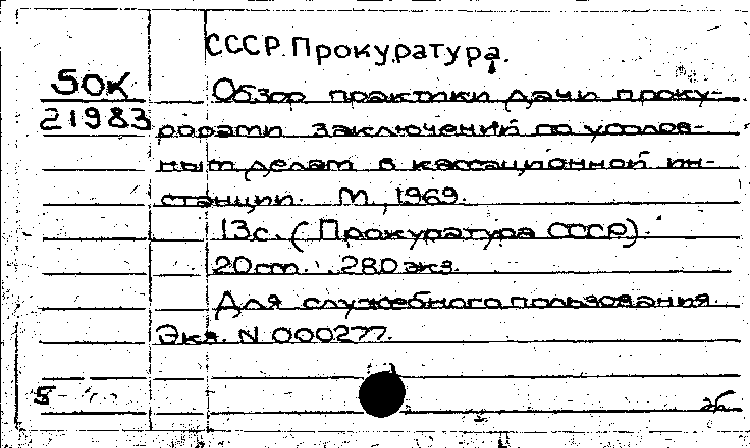 СССР. Прокуратура.
50К
21983
Обзор практики дачи проку-
рорами заключений по уголов-
ным делам в кассационной ин-
станции. М., 1969.
13с. (Прокуратура СССР).
20см. 280 экз.
Для служебного пользования.
Экз. N 000277.
5